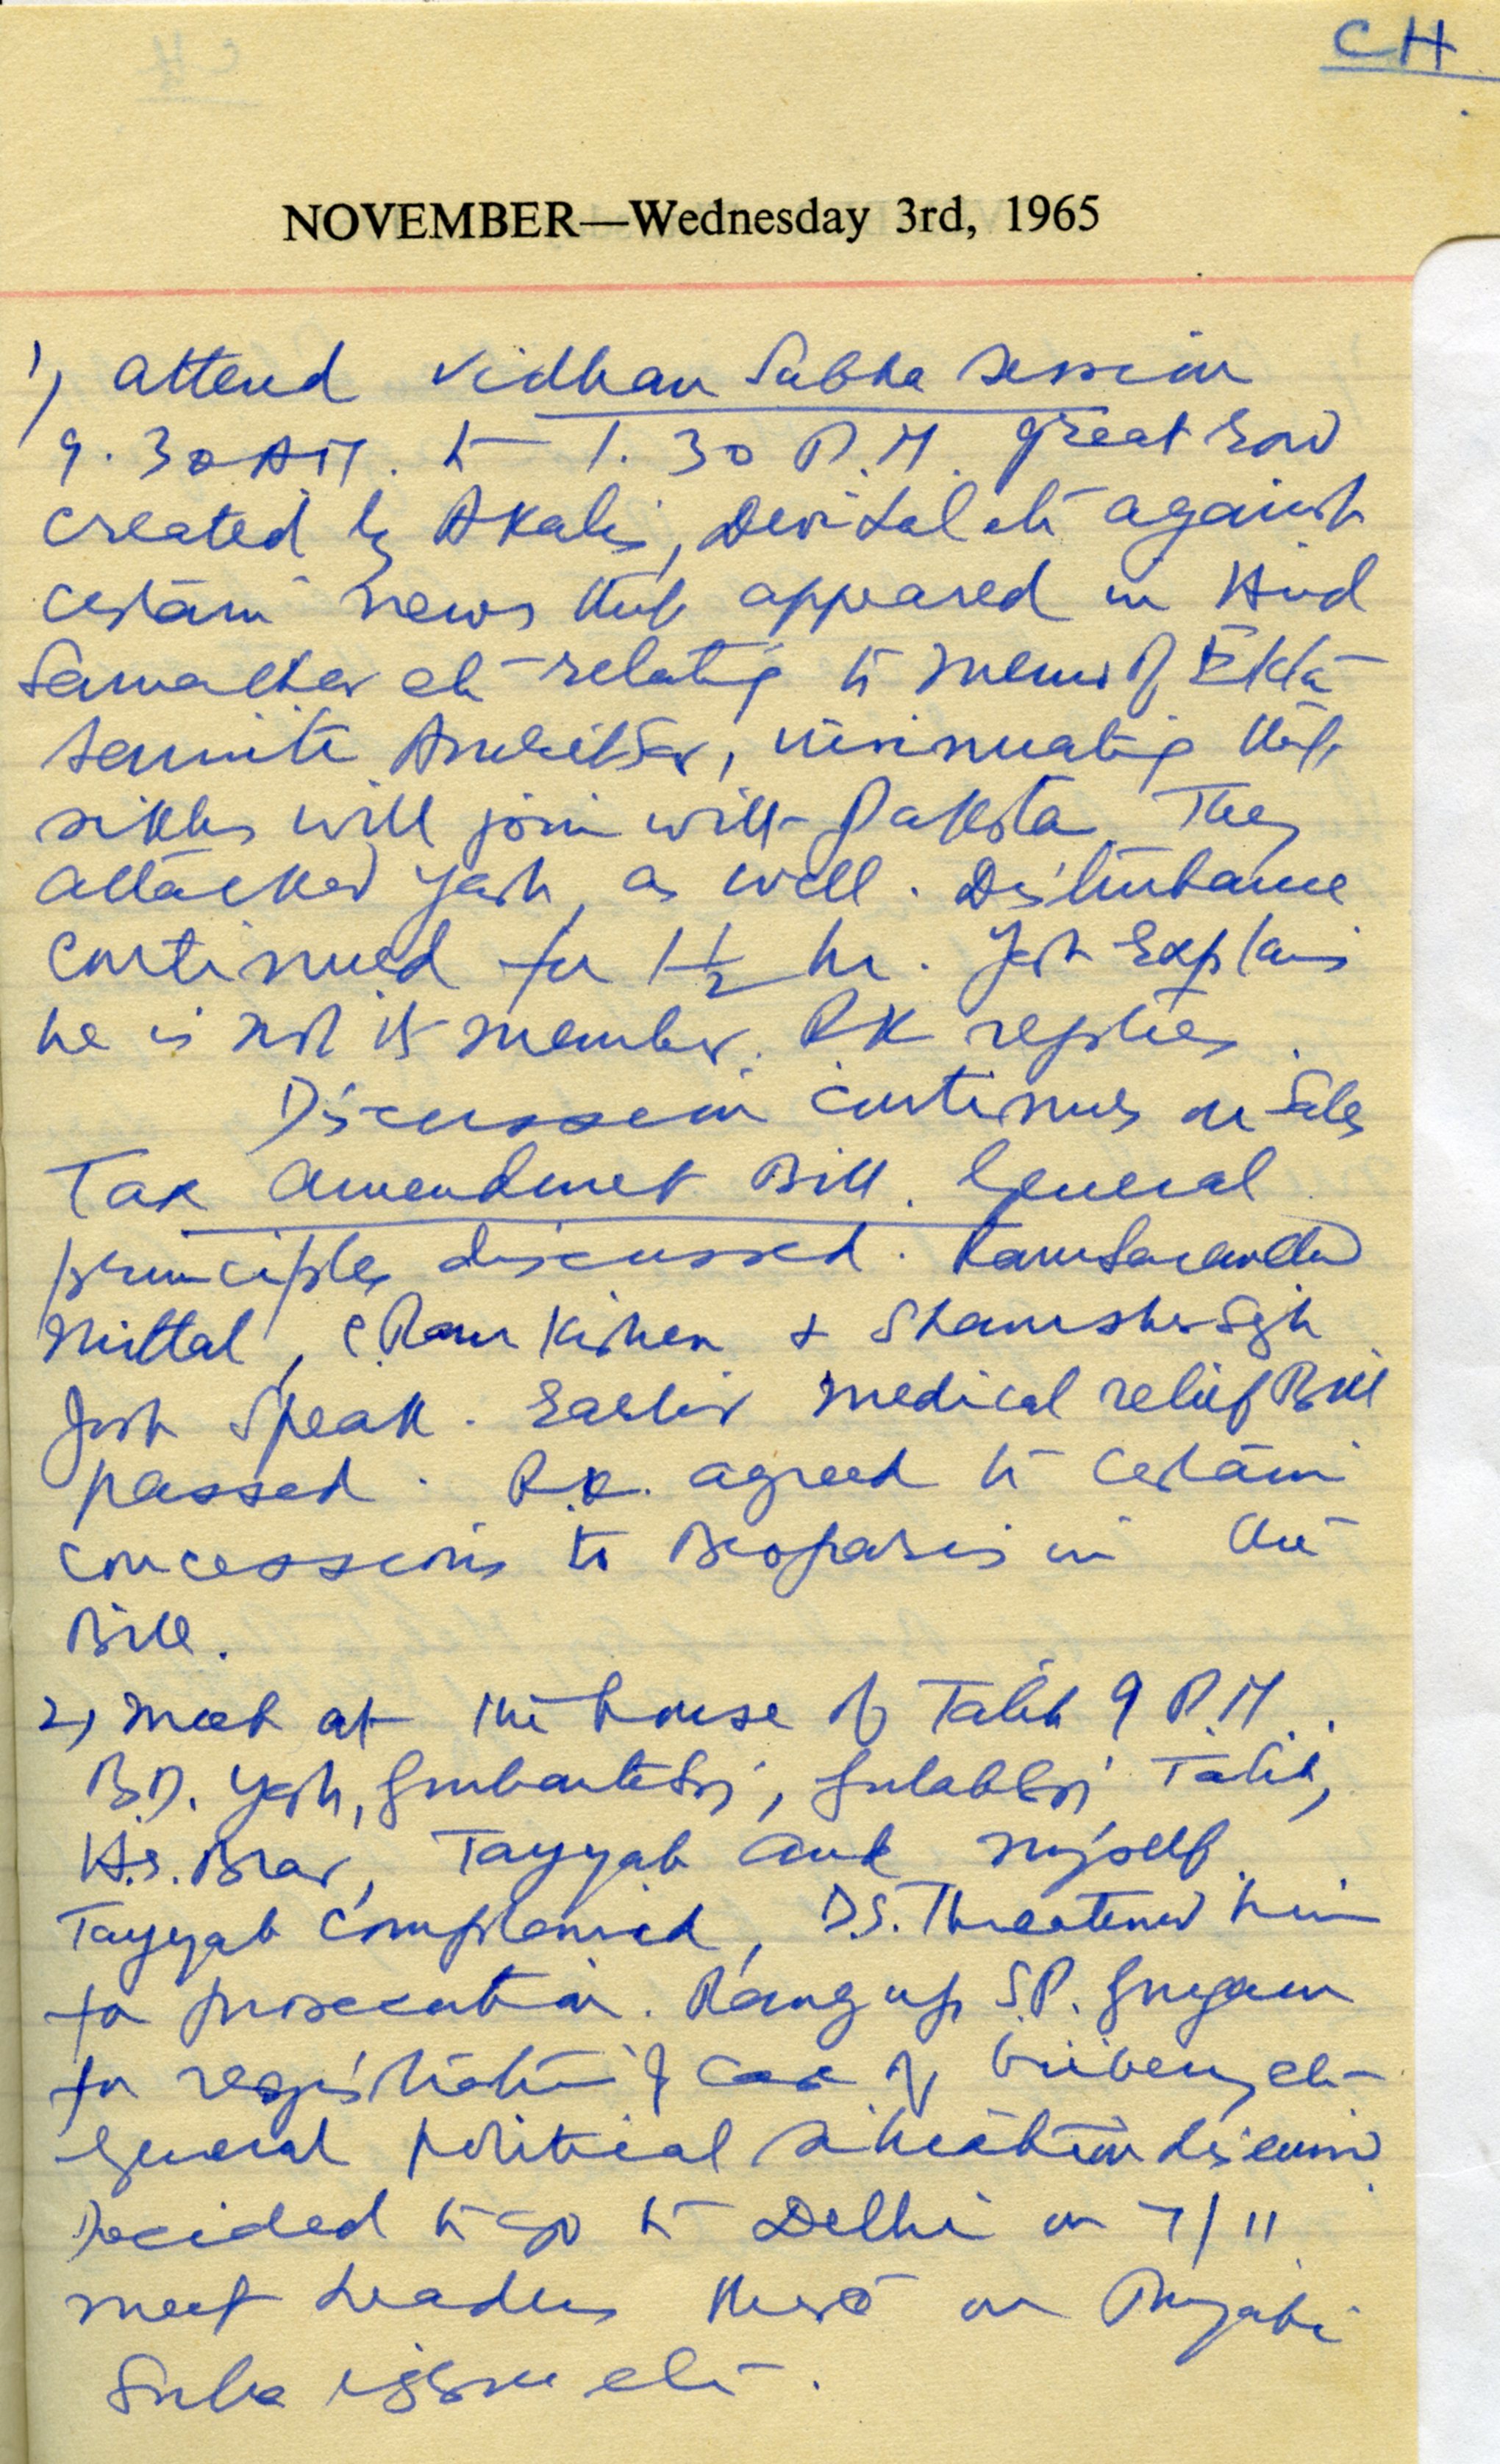 CH
NOVEMBER—Wednesday 3rd, 1965
1) attend Vidhan Sabha session
9.30 AM. to 1.30 P.M. great row
created by Akalis, Devi Lal etc against
certain news that appeared in Hind
Samachar etc relating to memo of Ekta
Samiti Amritsar, insinuating that
sikhs will join with Pakista. They
attacked Yash, as well. Disturbance
continued for 1½ hr. Yash explains
he is not its member. RK replies.
Discussion continues on Sales
Tax amendment Bill. General
principles discussed. Ram Saran Chand
Mittal, C. Ram Kishen + Shamsher Sgh
Josh speak. Earlier medical relief Bill
passed. R.K. agreed to certain
concessions to Beoparis in the
Bill.
2) meet at the house of Talib 9 P.M.
B.D. Yash, Gurbanta Sgj, Gulab Sgj, Talib,
H.S. Brar, Tayyab and myself.
Tayyab complained, D.S. Threatened him
for prosecution. Rang up S.P. Gurgaon
for registration of case of bribery etc
General political situation discussed
Decided to go to Delhi on 7/11
meet leaders there on Punjabi
Suba issue etc.